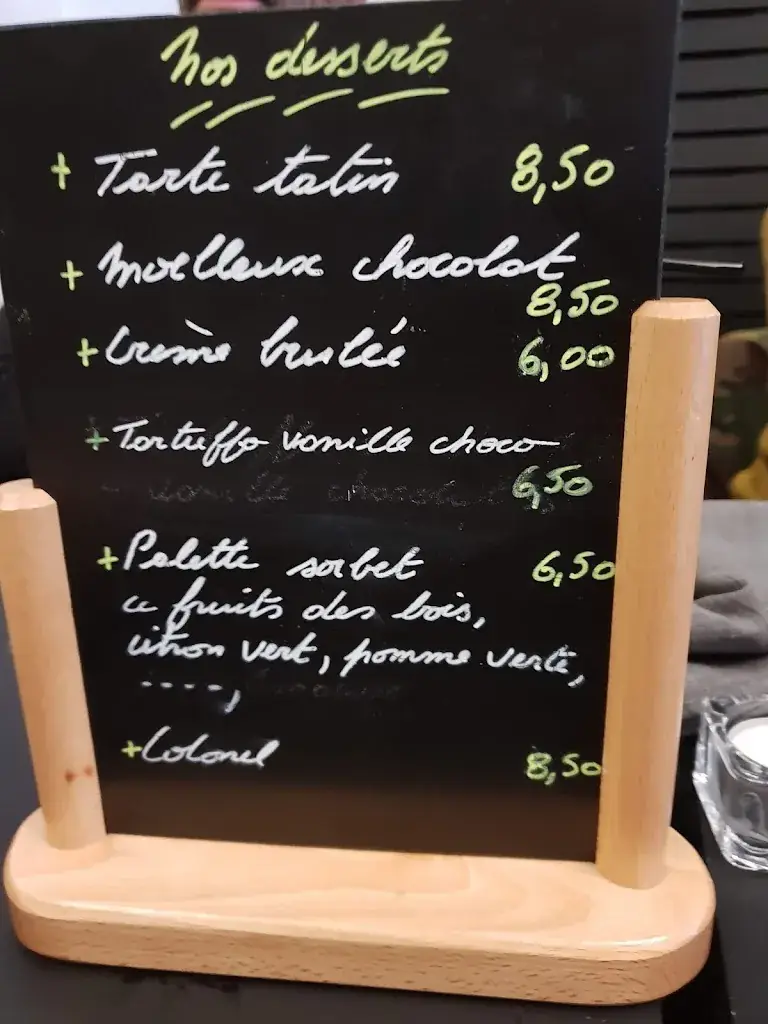 Nos desserts
+ Tarte tatin 8,50
+ Moelleux chocolat
8,50
+ Crème brulée 6,00
+ Tartuffo vanille choco
6,50
+ Palette sorbet 6,50
fruits des bois,
citron vert, pomme verte,
----,
+ Colonel 8,50